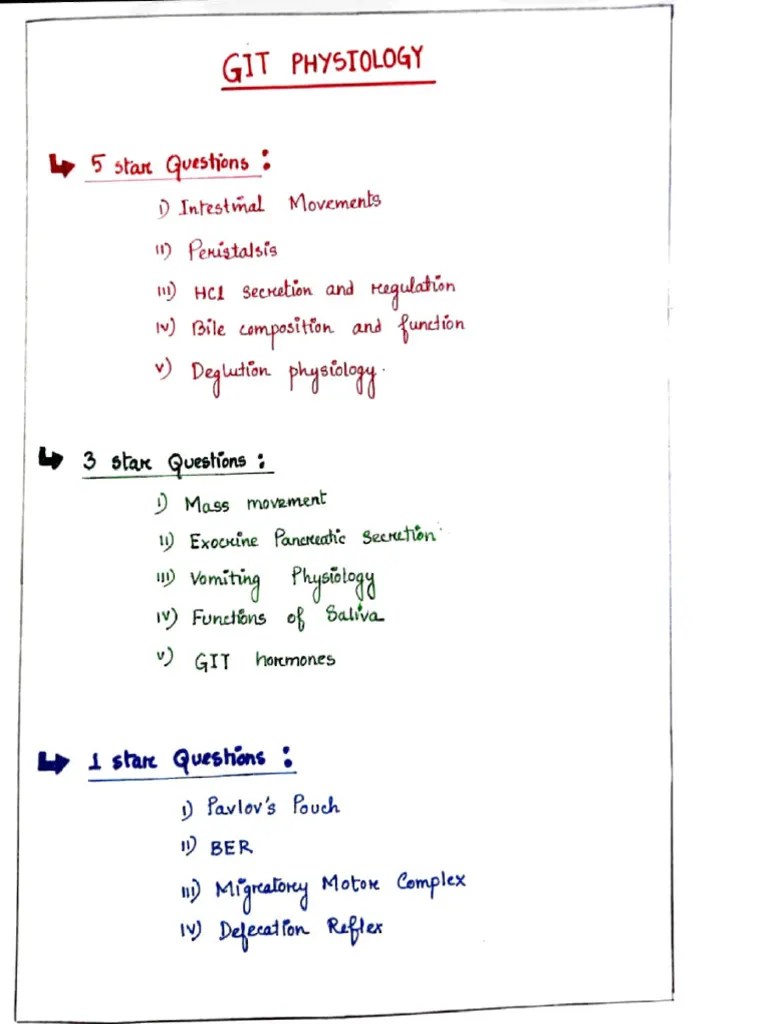 GIT PHYSIOLOGY
5 star Questions :
i) Intestinal Movements
ii) Peristalsis
iii) HCl secretion and regulation
iv) Bile composition and function
v) Deglution physiology.
3 star Questions :
i) Mass movement
ii) Exocrine Pancreatic Secretion
iii) Vomiting Physiology
iv) Functions of Saliva
v) GIT hormones
1 star Questions :
i) Pavlov's Pouch
ii) BER
iii) Migreatory Motor Complex
iv) Defecation Reflex